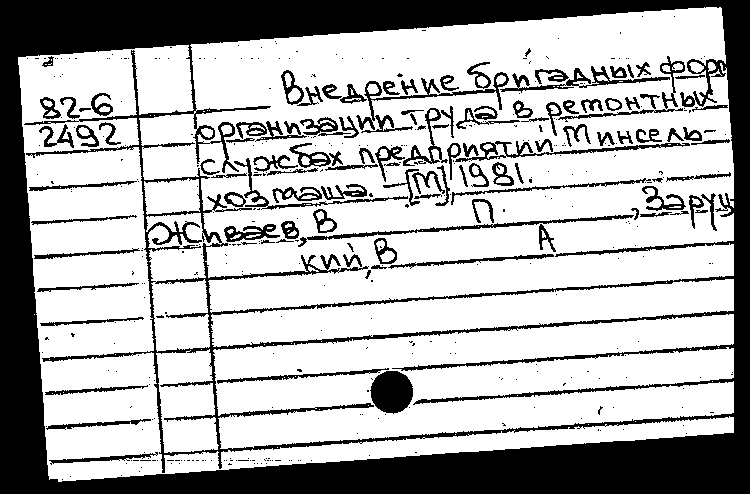 Внедрение бригадных форм
82-6
организации труда в ремонтных
2492
службах предприятий Минсель-
хозмаша. - [М], 1981.
Живаев, В П. , Заруц
кий, В А